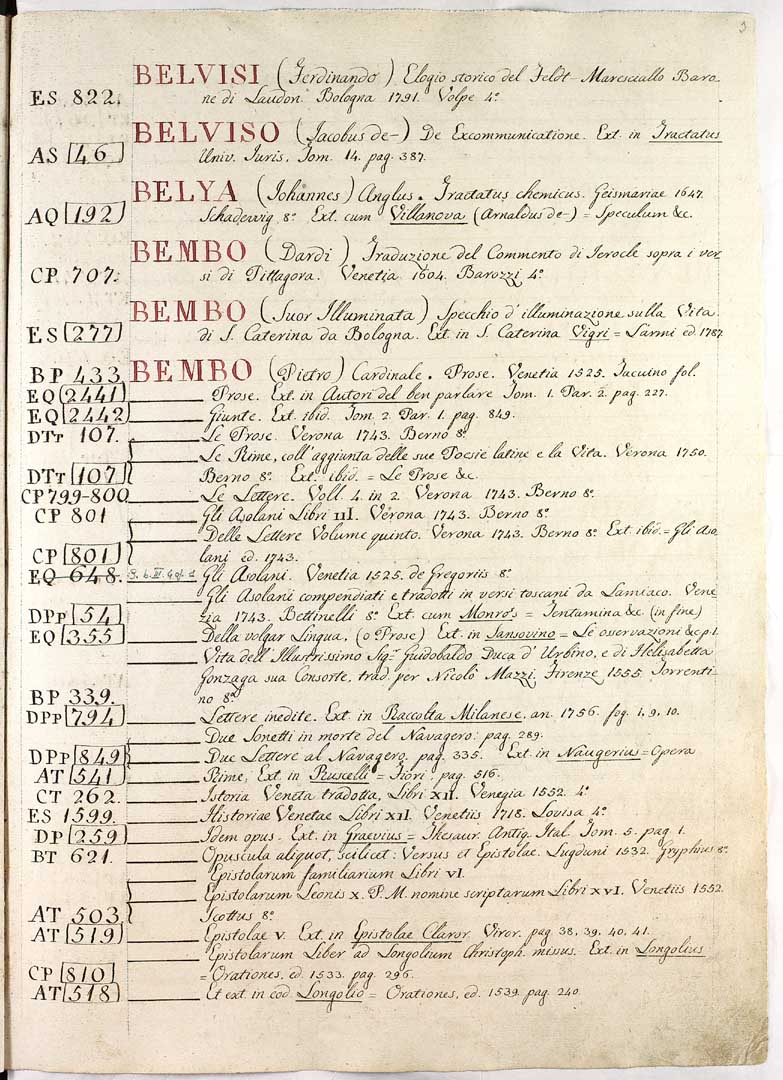 3
BELVISI (Ferdinando) Elogio storico del Feldt-Maresciallo Baro-
ES 822. ne di Laudon. Bologna 1791. Volpe 4º
BELVISO (Jacobus de-) De Excommunicatione. Ext. in Tractatus
AS 46 Univ. Juris. Tom. 14. pag. 387.
BELYA (Iohannes) Anglus. Tractatus chemicus. Geismariae 1647.
AQ 192 Schadewig 8º Ext. cum Villanova (Arnaldus de-) = Speculum &c.
BEMBO (Dardi) Traduzione del Commento di Jerocle sopra i ver-
CP 707. si di Pittagora. Venetia 1604. Barozzi 4º
BEMBO (Suor Illuminata) Specchio d'illuminazione sulla Vita
ES 277 di S. Caterina da Bologna. Ext. in S. Caterina Vigri = Sarmi ed. 1787.
BP 433 BEMBO (Pietro) Cardinale. Prose. Venetia 1525. Tacuino fol.
EQ 2441 Prose. Ext. in Autori del ben parlare Tom. 1. Par. 2. pag. 227.
EQ 2442 Giunte. Ext. ibid. Tom. 2. Par. 1. pag. 849.
DTt 107. Le Prose. Verona 1743. Berno 8º
Le Rime, coll'aggiunta delle sue Poesie latine e la Vita. Verona 1750.
DTt 107 Berno 8º Ext. ibid. = Le Prose &c.
CP 799-800 Le Lettere. Voll. 4. in 2. Verona 1743. Berno 8º
CP 801 Gli Asolani Libri III. Verona 1743. Berno 8º
Delle Lettere Volume quinto. Verona 1743. Berno 8º Ext. ibid. = Gli Aso-
CP 801 lani ed. 1743.
EQ 648. Gli Asolani. Venetia 1525. de Gregoriis 8º
Gli Asolani compendiati e tradotti in versi toscani da Lamiaco. Vene-
DPp 54 zia 1743. Bettinelli 8º Ext. cum Monro's = Tentamina &c. (in fine)
EQ 355 Della volgar Lingua, (o Prose) Ext. in Sansovino = Le osservazioni &c p. 1.
Vita dell'Illustrissimo Sigr. Guidobaldo Duca d'Urbino, e di Helisabetta
Gonzaga sua Consorte, trad. per Nicolò Mazzi. Firenze 1555. Torrenti-
BP 339. no 8º
DPp 794 Lettere inedite. Ext. in Raccolta Milanese. an. 1756. fog. 1, 9, 10.
Due Sonetti in morte del Navagero. pag. 289.
DPp 849 Due Lettere al Navagero. pag. 335. Ext. in Naugerius = Opera
AT 541 Rime, Ext. in Ruscelli = Fiori pag. 516.
CT 262. Istoria Veneta tradotta, Libri XII. Venegia 1552. 4º
ES 1599. Historiae Venetae Libri XII. Venetiis 1718. Lovisa 4º
DP 259 Idem opus. Ext. in Graevius = Thesaur. Antiq. Ital. Tom. 5. pag 1.
BT 621. Opuscula aliquot, scilicet: Versus et Epistolae. Lugduni 1532. Gryphius 8º
Epistolarum familiarium Libri VI.
Epistolarum Leonis X. P. M. nomine scriptarum Libri XVI. Venetiis 1552.
AT 503 Scottus 8º
AT 519 Epistolae V. Ext. in Epistolae Claror. Viror. pag 38, 39, 40, 41.
Epistolarum Liber ad Longolium Christoph. missus. Ext. in Longolius
CP 810 = Orationes, ed. 1533. pag. 296.
AT 518 Et ext. in eod. Longolio = Orationes, ed. 1539. pag 240.